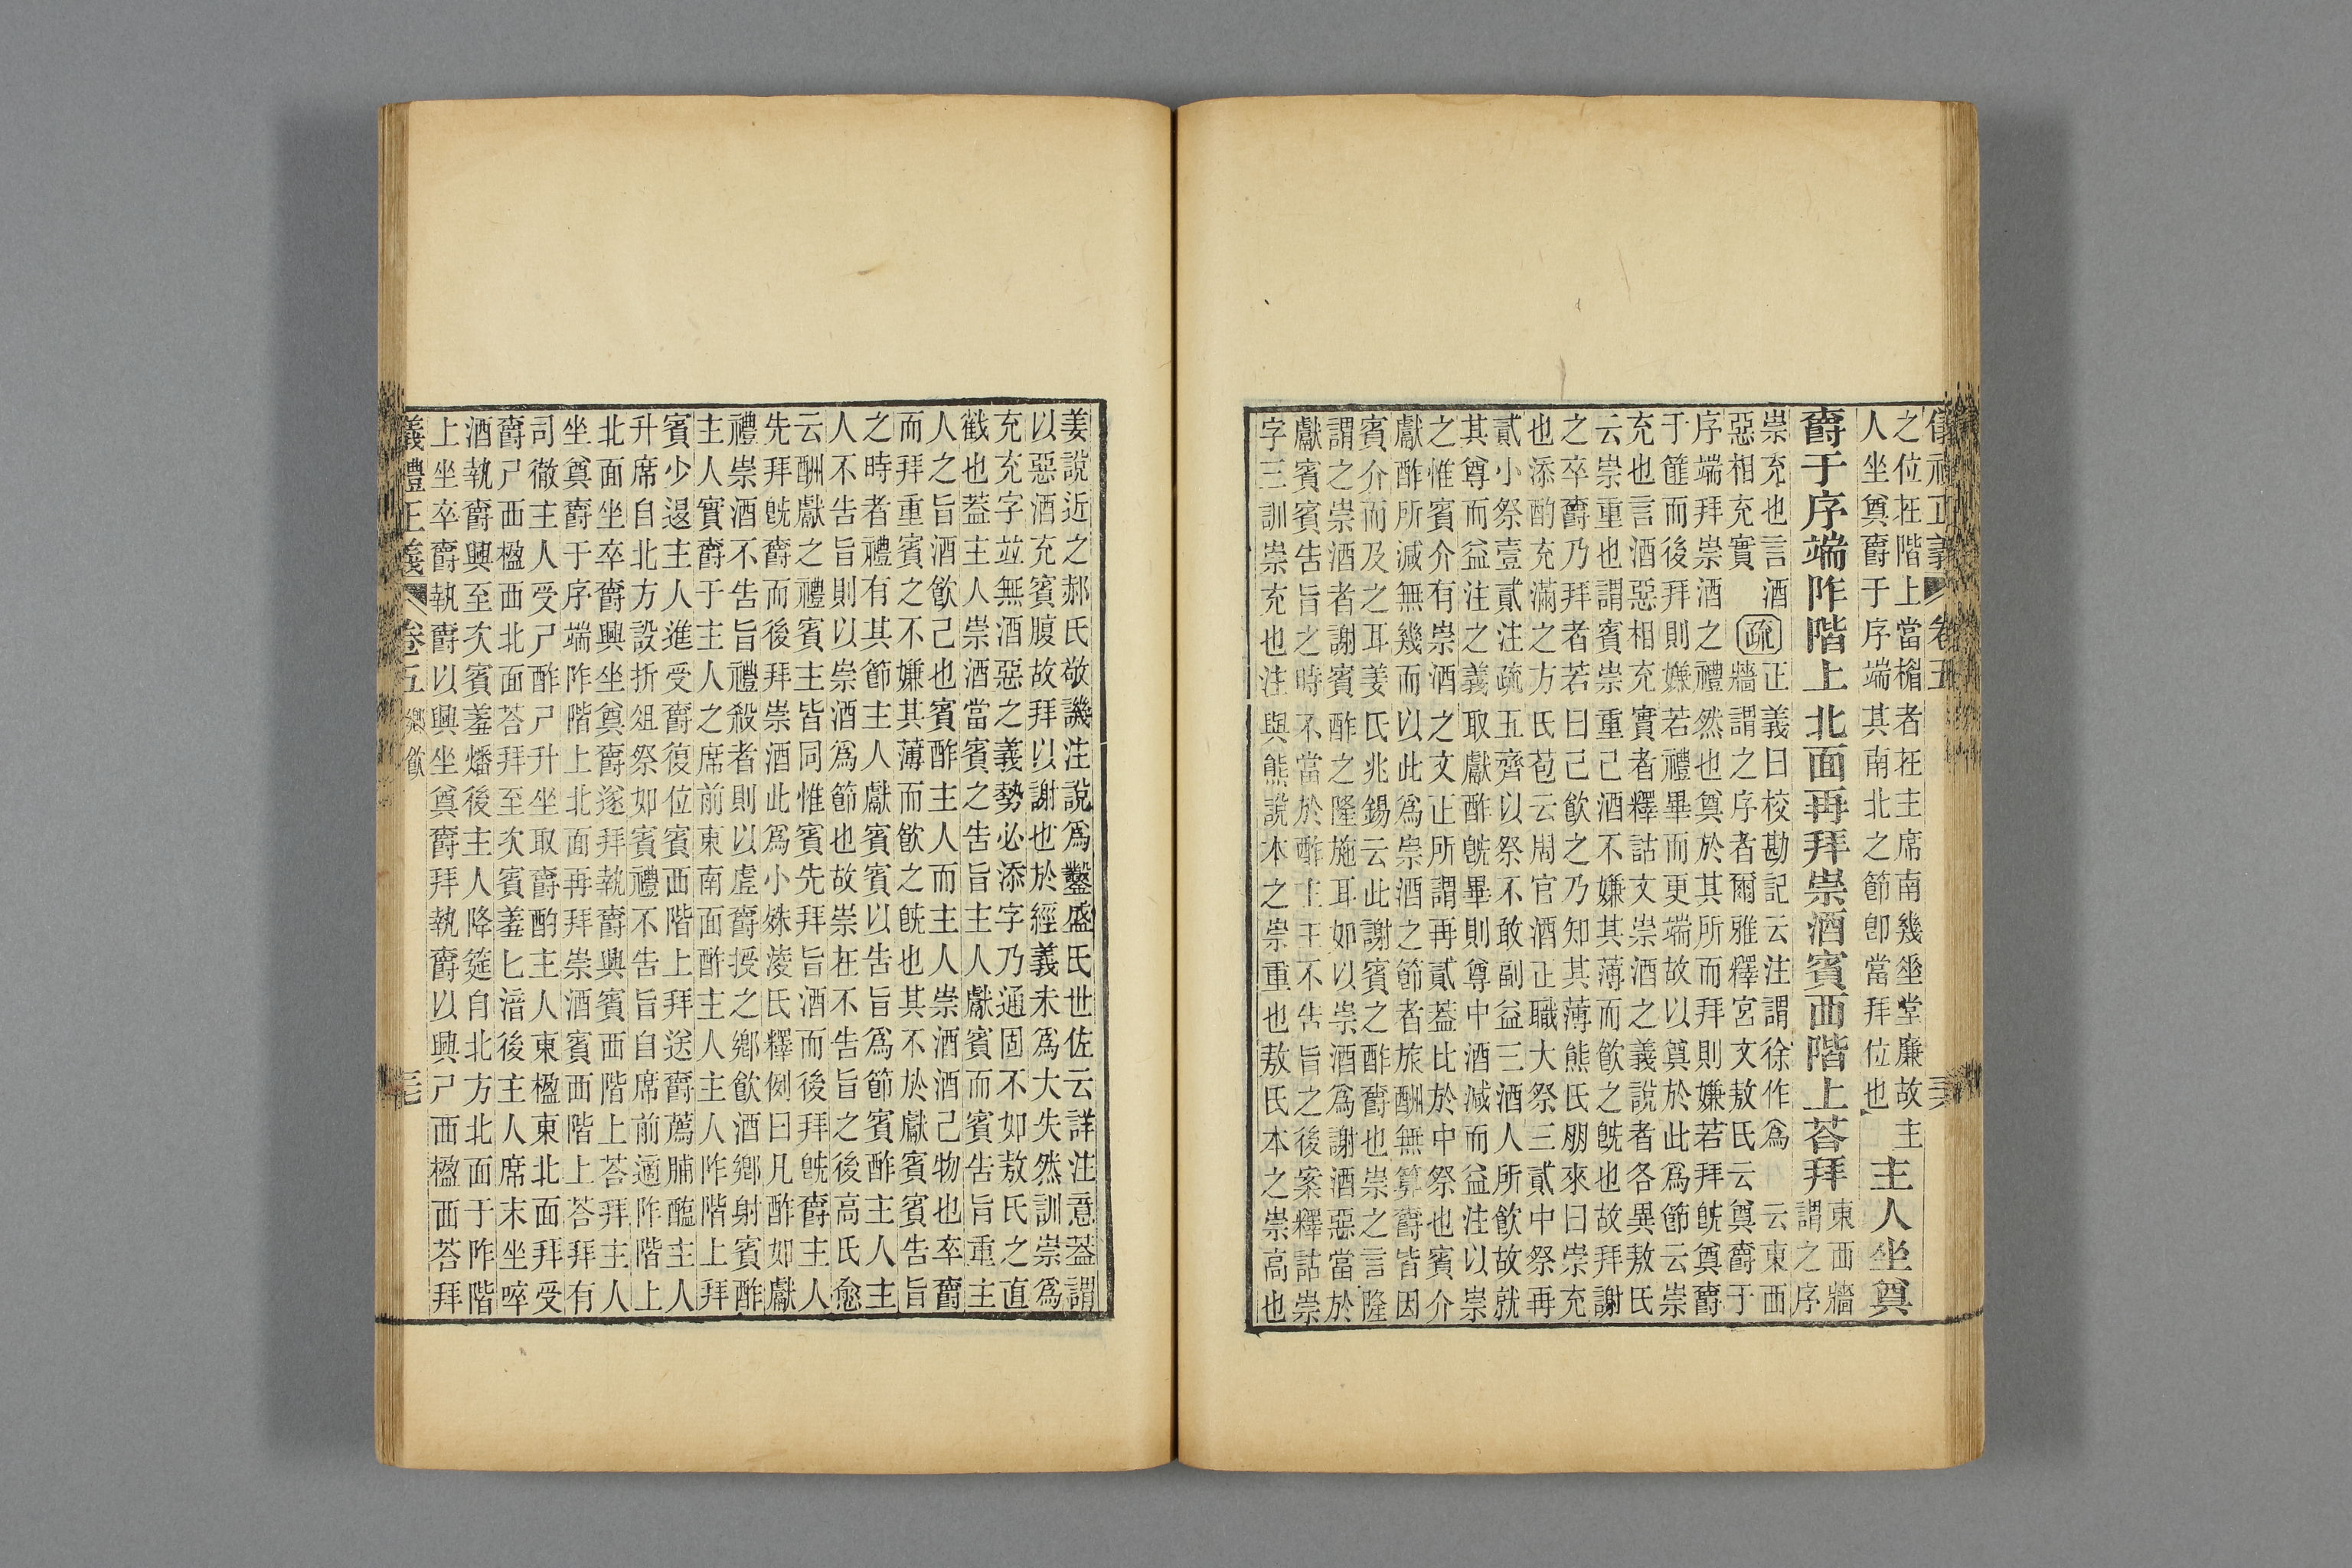 儀禮正義 卷五
之位在階上當楣者在主席南幾坐堂廉故主
人坐奠爵于序端其南北之節卽當拜位也
主人坐奠
爵于序端阼階上北面再拜崇酒賓西階上荅拜
東西牆
謂之序
崇充也言酒
惡相充實
疏
正義曰校勘記云注謂徐作爲 云東西
牆謂之序者爾雅釋宮文敖氏云奠爵于
序端拜崇酒之禮然也奠於其所而拜則嫌若拜旣奠爵
于篚而後拜則嫌若禮畢而更端故以奠於此爲節云崇
充也言酒惡相充實者釋詁文崇酒之義說者各異敖氏
云崇重也謂賓崇重己酒不嫌其薄而飮之旣也故拜謝
之卒爵乃拜者若曰己飮之乃知其薄熊氏朋來曰崇充
也添酌充滿之方氏苞云周官酒正職大祭三貳中祭再
貳小祭壹貳注疏五齊以祭不敢副益三酒人所飮故就
其尊而益注之義取獻酢旣畢則尊中酒減而益注以崇
之惟賓介有崇酒之文正所謂再貳蓋比於中祭也賓介
獻酢所減無幾而以此爲崇酒之節者旅酬無算爵皆因
賓介而及之耳姜氏兆錫云此謝賓之酢爵也崇之言隆
謂之崇酒者謝賓酢之隆施耳如以崇酒爲謝酒惡當於
獻賓賓告旨之時不當於酢主王不告旨之後案釋詁崇
字三訓崇充也注與熊說本之崇重也敖氏本之崇高也
姜說近之郝氏敬譏注說爲鑿盛氏世佐云詳注意蓋謂
以惡酒充賓腹故拜以謝也於經義未爲大失然訓崇爲
充充字並無酒惡之義勢必添字乃通固不如敖氏之直
截也蓋主人崇酒當賓之告旨主人獻賓而賓告旨重主
人之旨酒飮己也賓酢主人而主人崇酒酒己物也卒爵
而拜重賓之不嫌其薄而飮之旣也其不於獻賓賓告旨
之時者禮有其節主人獻賓賓以告旨爲節賓酢主人主
人不告旨則以崇酒爲節也故崇在不告旨之後高氏愈
云酬獻之禮賓主皆同惟賓先拜旨酒而後拜旣爵主人
先拜旣爵而後拜崇酒此爲小殊淩氏釋例曰凡酢如獻
禮崇酒不告旨禮殺者則以虛爵授之鄉飮酒鄉射賓酢
主人實爵于主人之席前東南面酢主人主人阼階上拜
賓少退主人進受爵復位賓西階上拜送爵薦脯醢主人
升席自北方設折俎祭如賓禮不告旨自席前適阼階上
北面坐卒爵興坐奠爵遂拜執爵興賓西階上荅拜主人
坐奠爵于序端阼階上北面再拜崇酒賓西階上荅拜有
司徹主人受尸酢尸升坐取爵酌主人東楹東北面拜受
爵尸西楹西北面荅拜至次賓羞匕湆後主人席末坐啐
酒執爵興至次賓羞燔後主人降筵自北方北面于阼階
上坐卒爵執爵以興坐奠爵拜執爵以興尸西楹西荅拜
儀禮正義 卷五 鄉飮